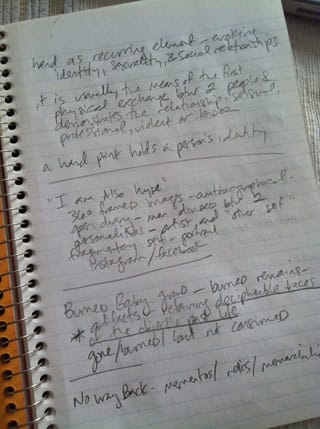 hand as recurring element - evoking
identity, sexuality, & social relationships
it is usually the means of the first
physical exchange btwn 2 people &
demonstrates the relationship - sexual,
professional, violent or
a hand print holds a person's identity
"I am Also Hype"
360 framed images - autobiographical
open diary - man divided btwn 2
personalities - artist and "other self"
fragmentary self-portrait
Instagram/facebook
Burned Baby Grand - burned remains -
* artifacts retaining decipherable traces
of the object's past life
gone/burned/but not consumed
No Way Back - mementos/relics/